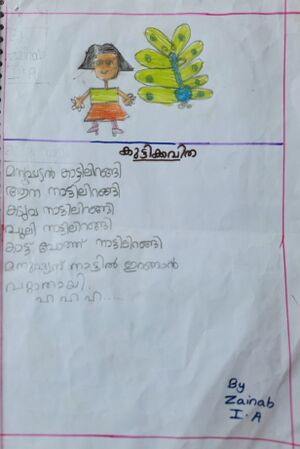 കുട്ടിക്കവിത
മനുഷ്യൻ കാട്ടിലിറങ്ങി
ആന നാട്ടിലിറങ്ങി
കടുവ നാട്ടിലിറങ്ങി
പുലി നാട്ടിലിറങ്ങി
കാട്ട് പോത്ത് നാട്ടിലിറങ്ങി
മനുഷ്യന് നാട്ടിൽ ഇറങ്ങാൻ
വയ്യാതായി..
ഹ ഹ ഹ.....
By
Zainab
I.A